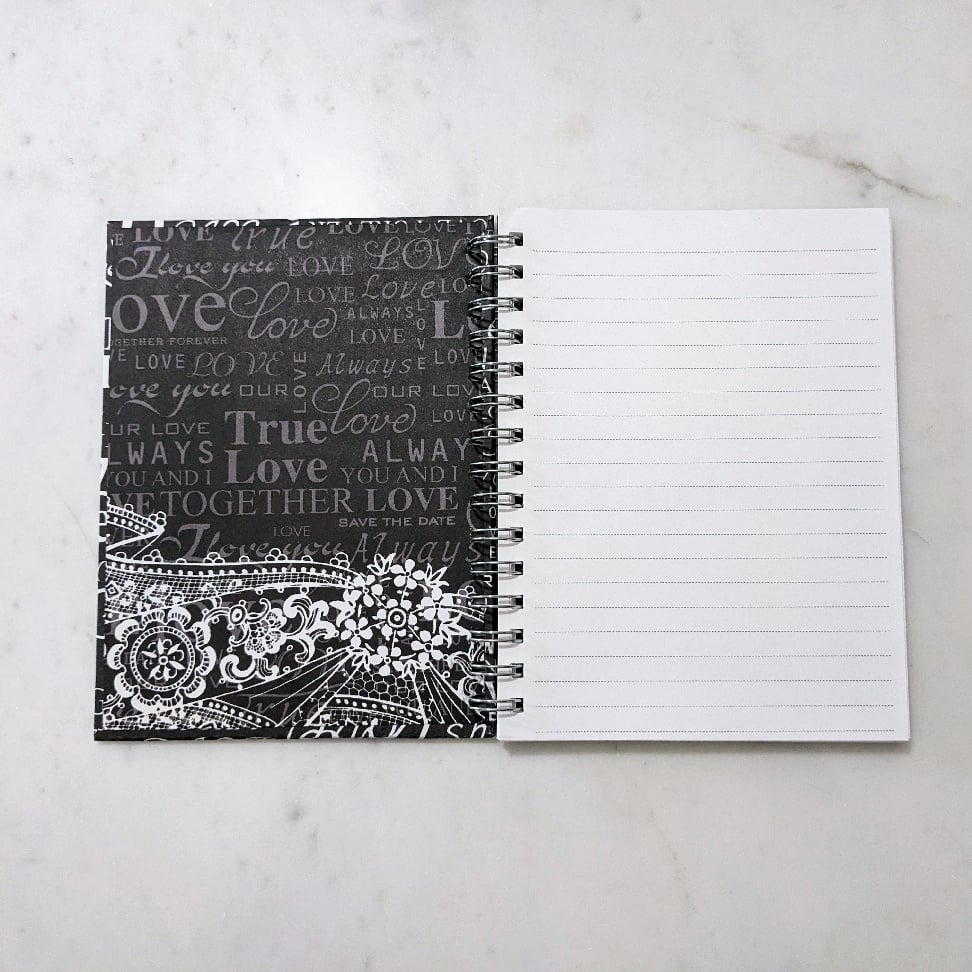 E LOVE True LOVE LOVE
I love you LOVE LOV
ove love LOVE Love LO
ALWAYS LOVE Lo
OGETHER FOREVER LOVE
VE LOVE LOVE LOVE Always LOV
ove you OUR love OUR LOV
UR LOVE True LOV
LWAYS ALWAY
YOU AND I Love YOU AND I
VE TOGETHER LOVE
SAVE THE DATE
VER LOVE
I love you Always